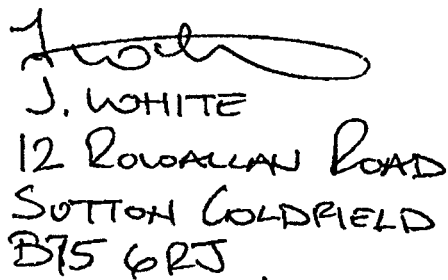 J. WHITE
12 ROWALLAN ROAD
SUTTON COLDFIELD
B75 6RJ